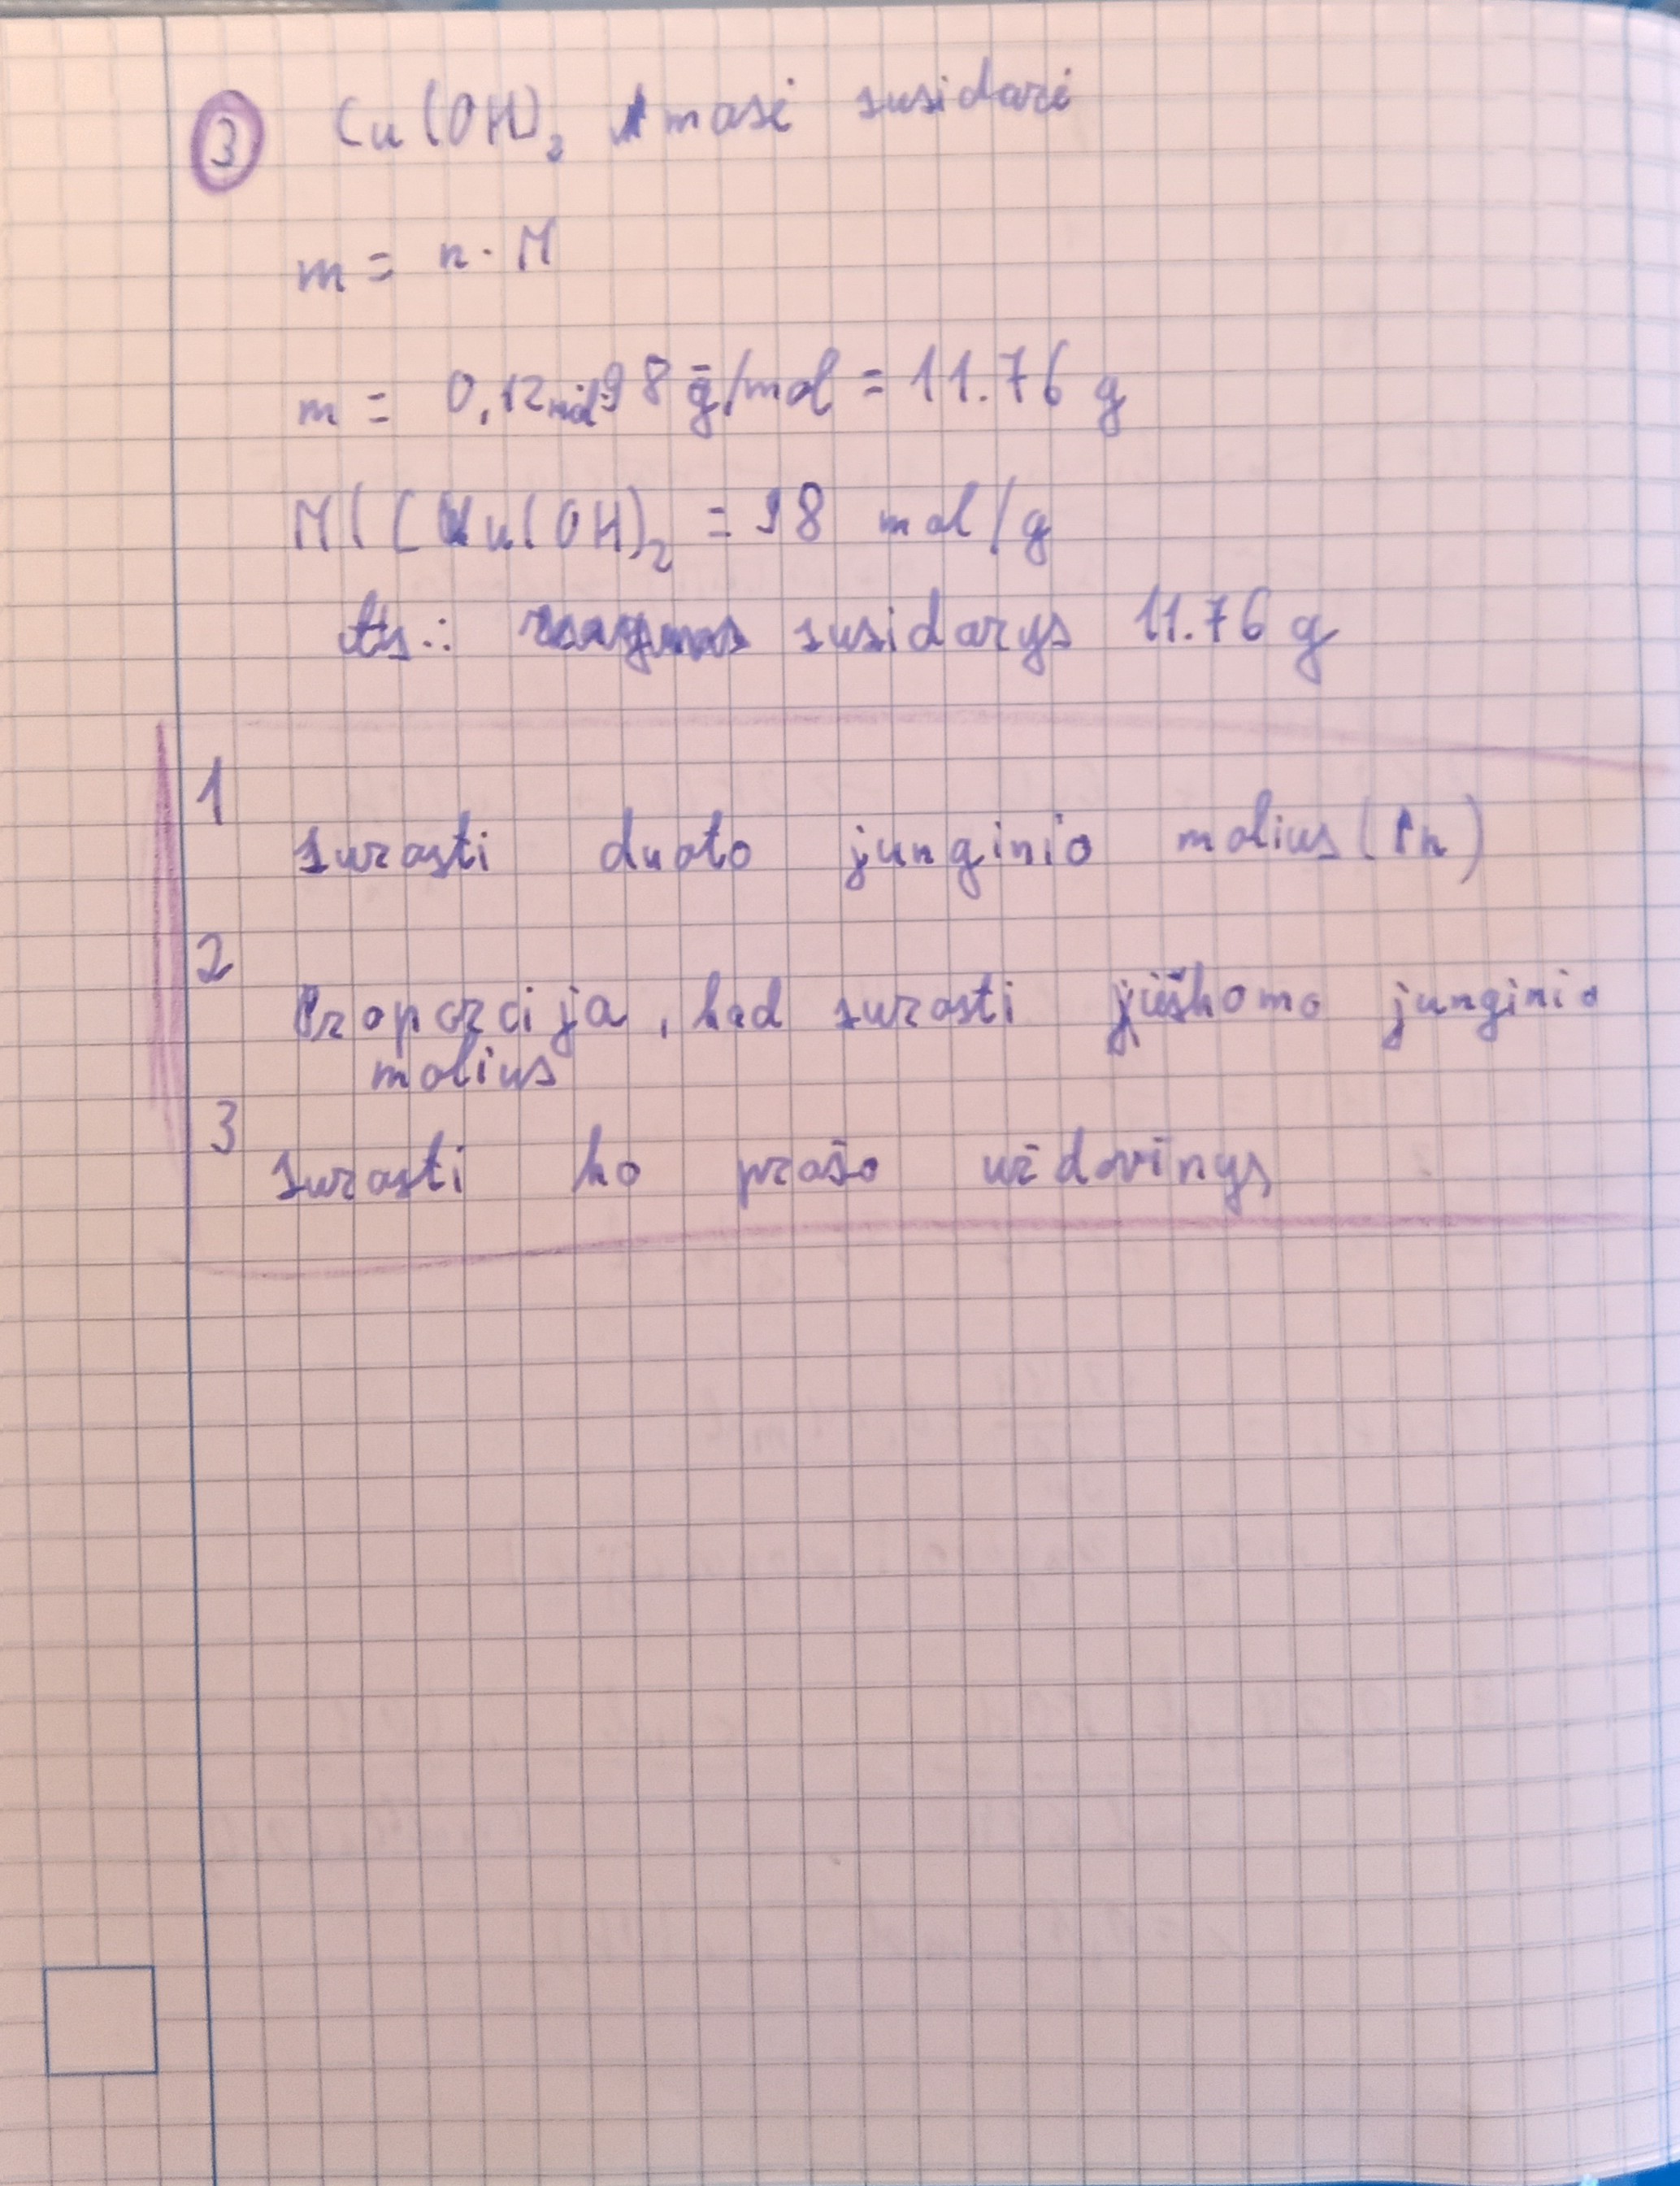 3 Cu(OH)₂ masė susidarė
m = n · M
m = 0,12 mol · 98 g/mol = 11.76 g
M(Cu(OH)₂ = 98 mol/g
Ats.: susidarys 11.76 g
1
surasti duoto junginio molius (n)
2
Proporcija, kad surasti ješkomo junginio
molius
3
surasti ko prašo uždavinys